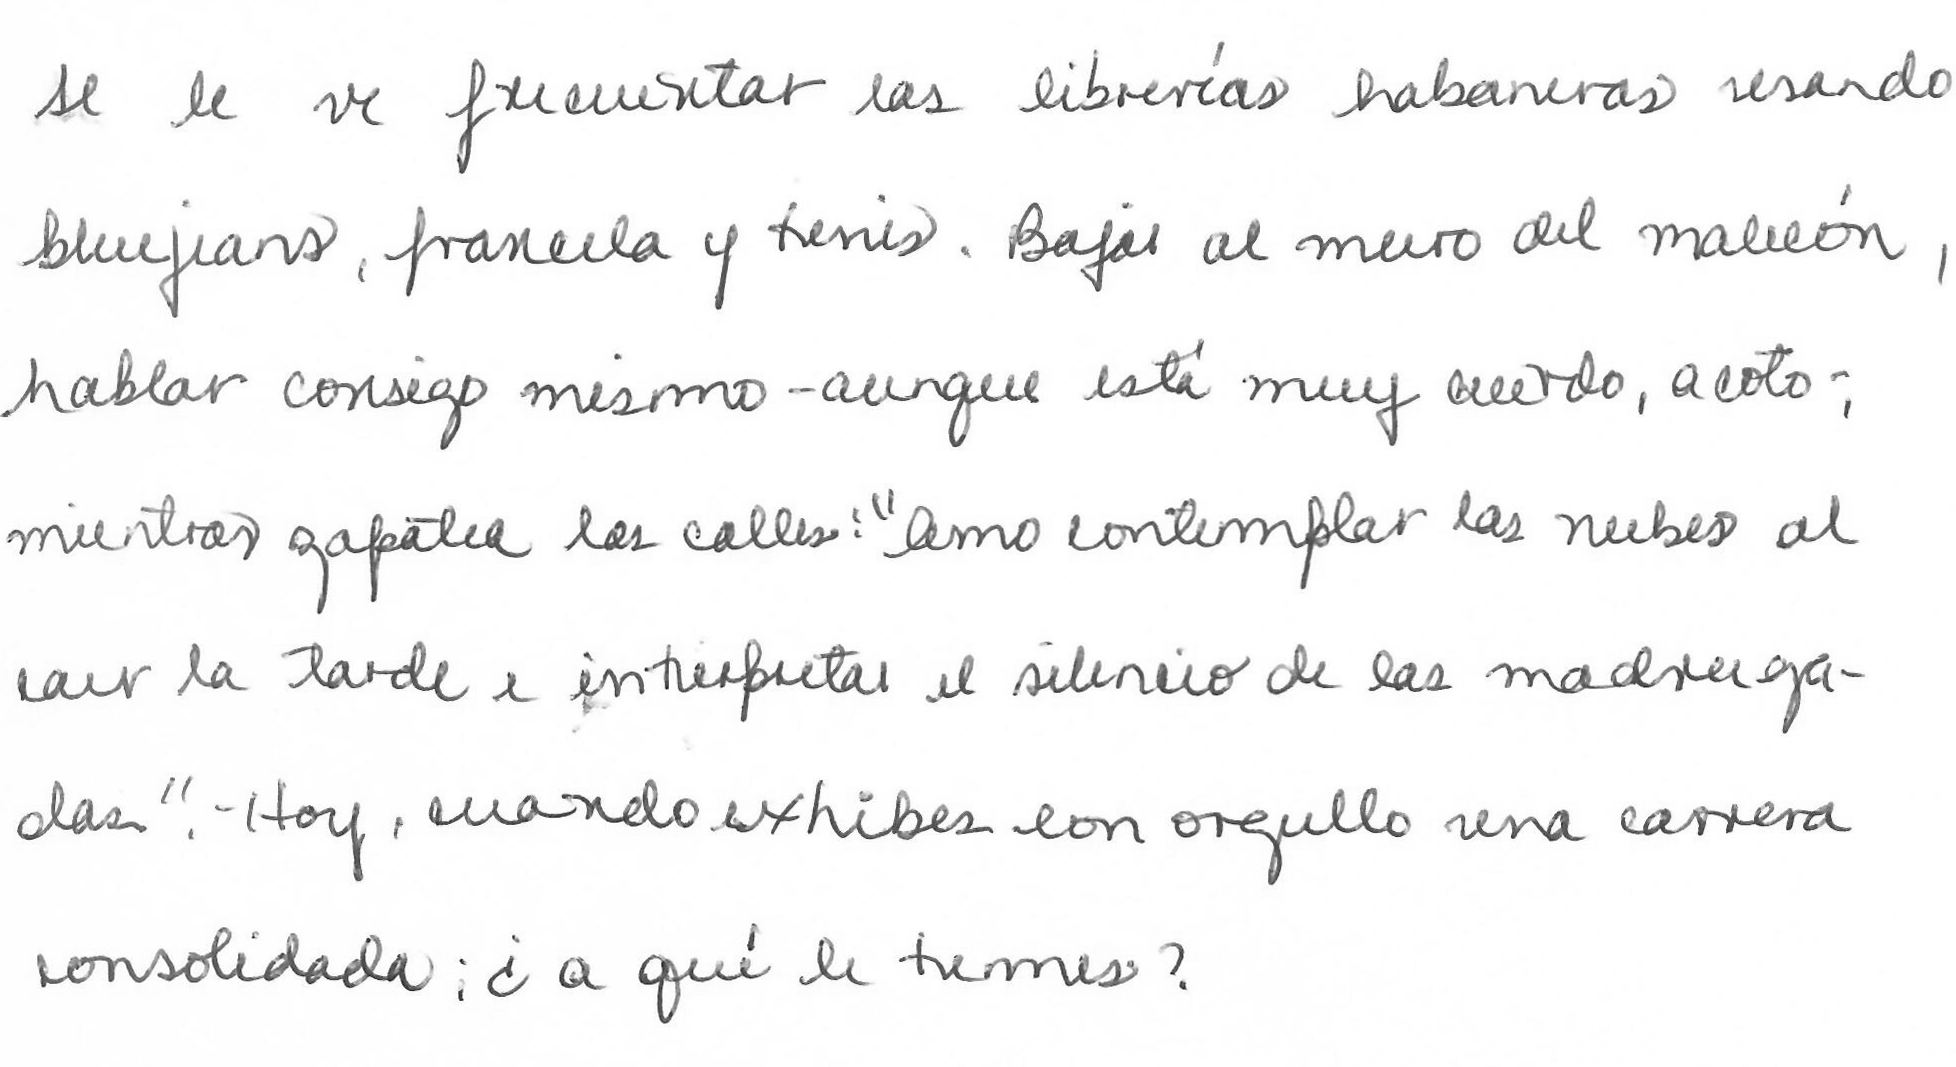 Se le ve frecuentar las librerías habaneras usando
bluejeans, franela y tenis. Bajar al muro del malecón,
hablar consigo mismo -aunque está muy cuerdo, acoto-;
mientras zapatea las calles: "Amo contemplar las nubes al
caer la tarde e interpretar el silencio de las madruga-
das". -Hoy, cuando exhibes con orgullo una carrera
consolidada; ¿a qué le temes?